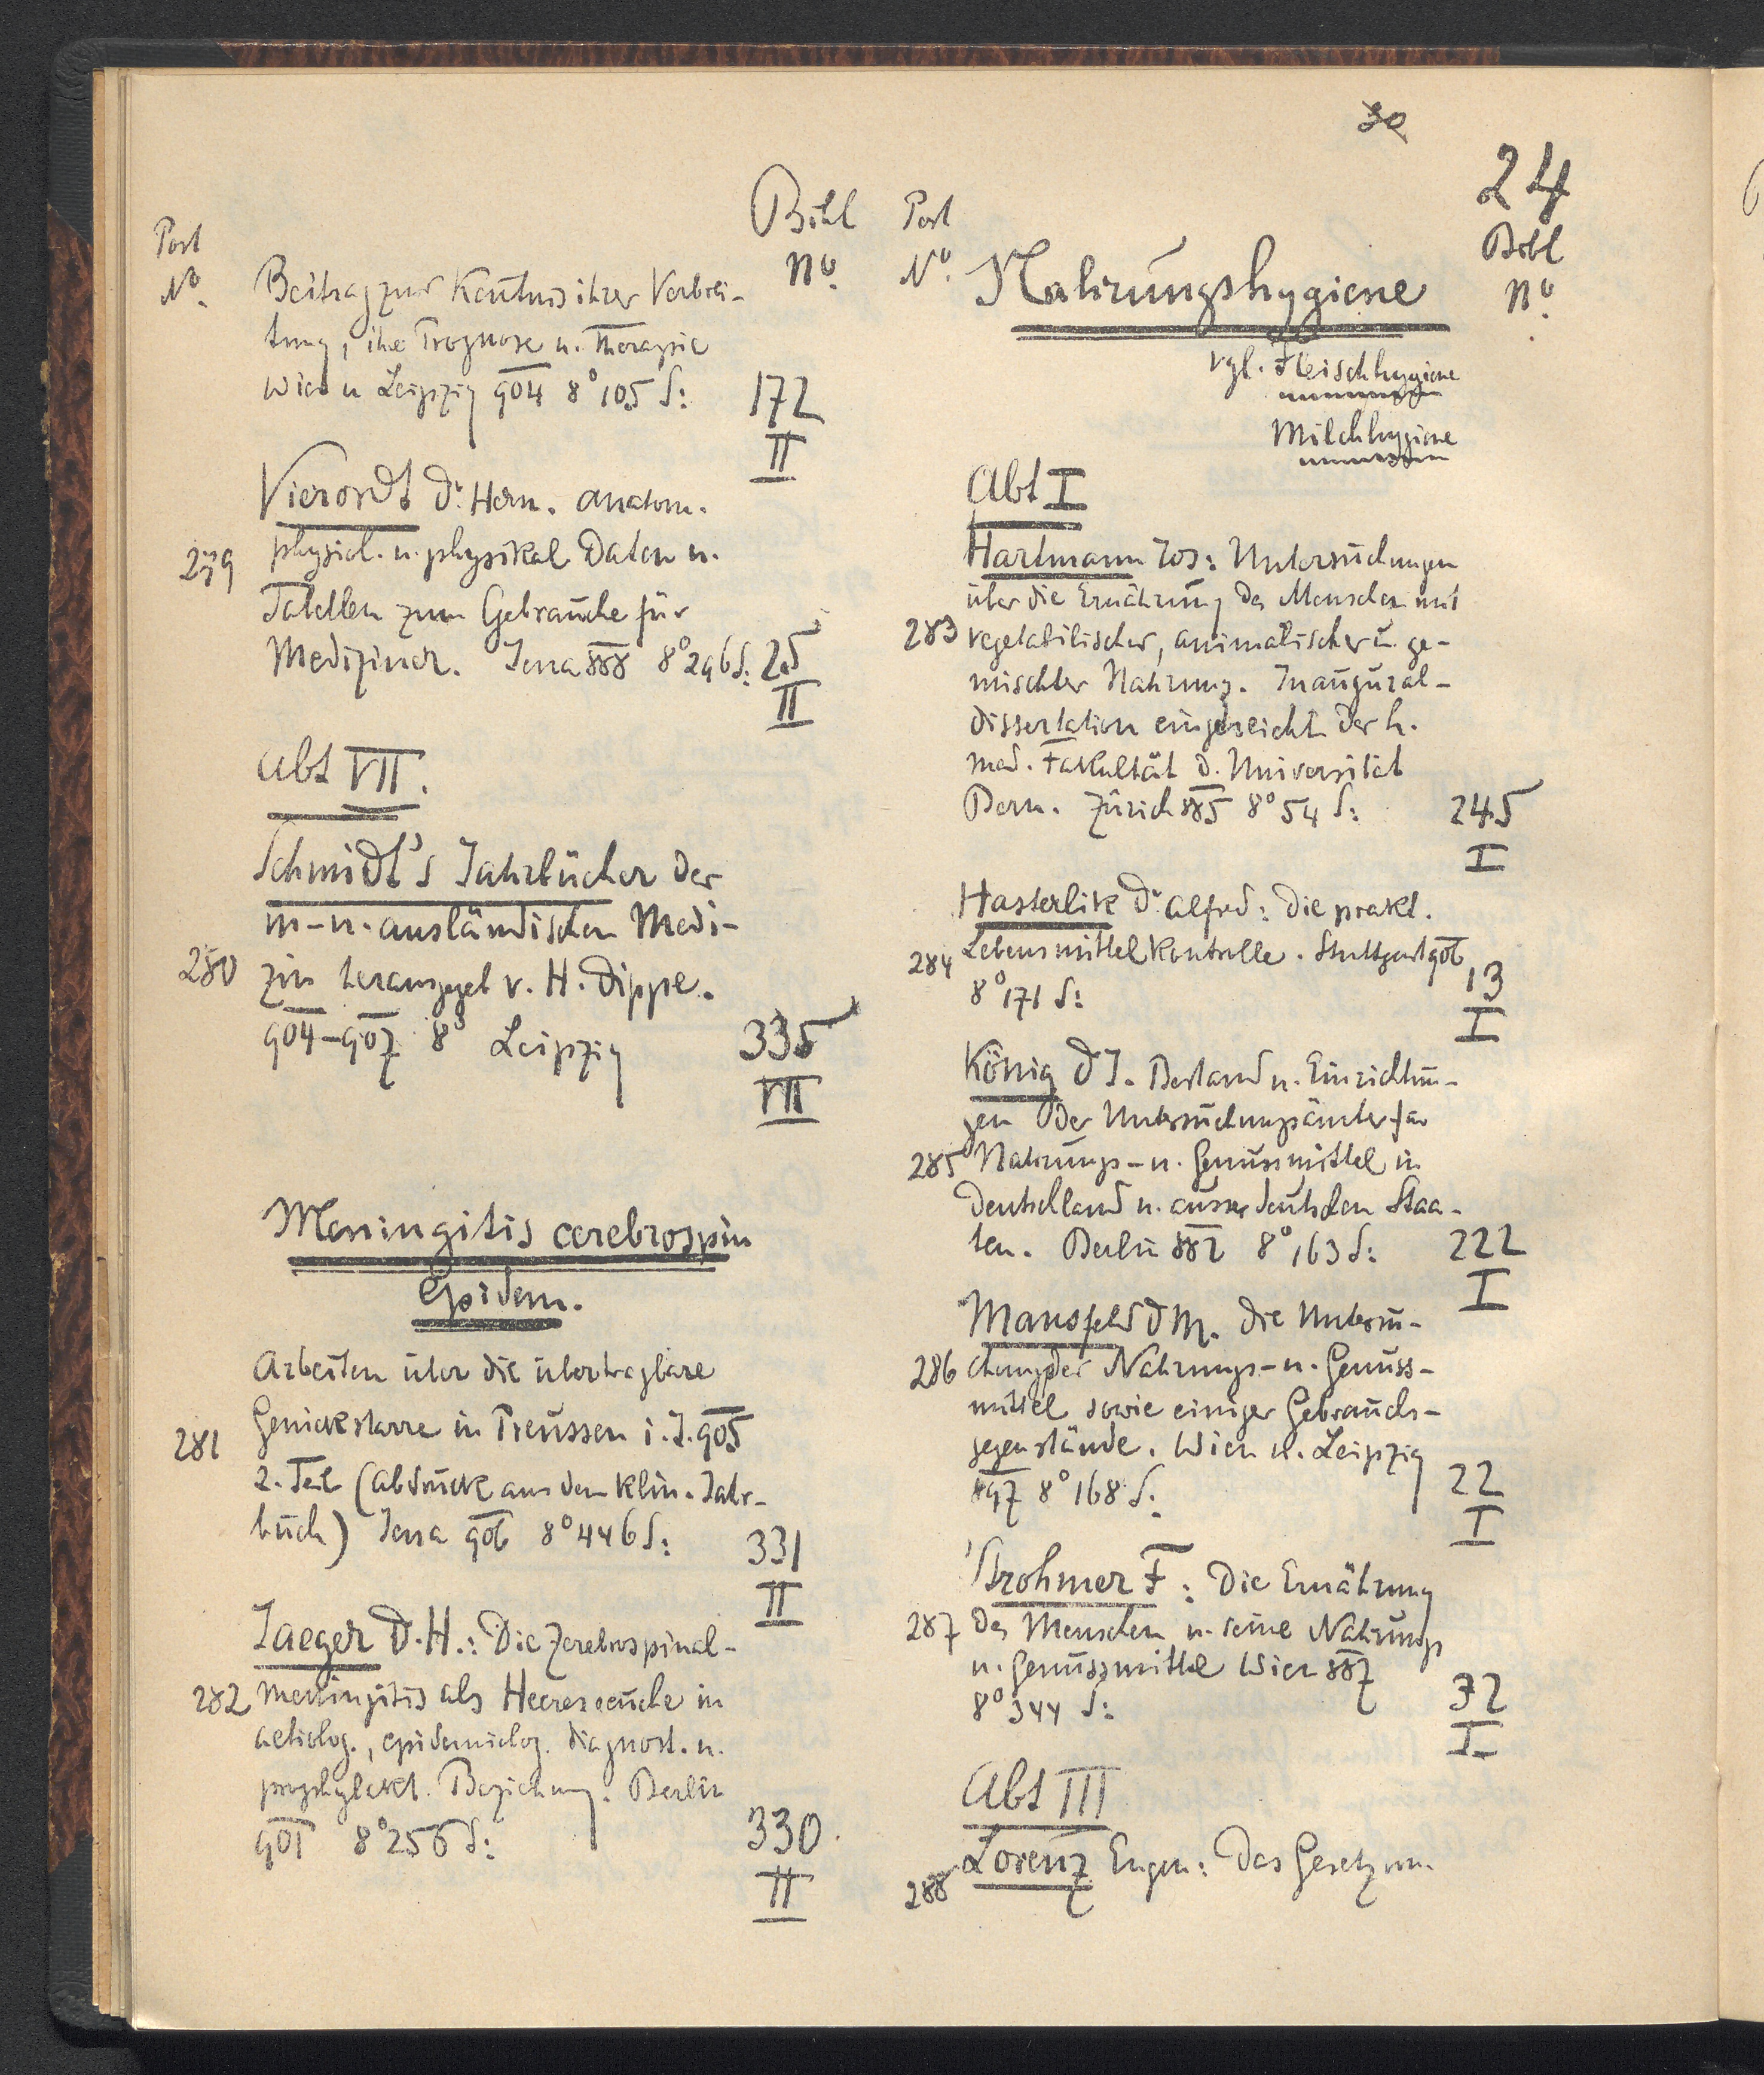 30
24
Post
No.
Bibl
No.
Beitrag zur Kentnis ihrer Verbrei-
tung, ihre Prognose u. Therapie
Wien u Leipzig 904 8° 105 S:
172
II
Vierordt Dr. Herm. Anatom.
279
physiol. u. physikal Daten u.
Tabellen zum Gebrauche für
Mediziner. Jena 888 8° 296 S:
25
II
Abt VII.
Schmidt's Jahrbücher der
in- u. ausländischen Medi-
280
zin herausgegeb v. H. Dippe.
904-907 8° Leipzig
335
VII
Meningitis cerebrospin
Epidem.
Arbeiten über die übertragbare
281
Genickstarre in Preussen i. J. 905
2. Teil (Abdruck aus dem Klin. Jahr-
buch) Jena 906 8° 446 S:
331
II
Jaeger D. H.: Die Zerebrospinal-
282
meningitis als Heeresseuche in
aetiolog., epidemiolog. diagnost. u.
prophylakt. Beziehung. Berlin
901 8° 256 S:
330
II
Post
No.
Bibl
No.
Nahrungshygiene
vgl. Fleischhygiene
Milchhygiene
Abt I
Hartmann Jos: Untersuchungen
über die Ernährung des Menschen mit
283
vegetabilischer, animalischer u. ge-
mischter Nahrung. Inaugural-
dissertation eingereicht der h.
med. Fakultät d. Universität
Bern. Zürich 885 8° 54 S:
245
I
Hasterlik Dr. Alfred: Die prakt.
284
Lebensmittelkontrolle. Stuttgart 906
8° 171 S:
13
I
König D J. Bestand u. Einrichtun-
gen der Untersuchungsämter für
285
Nahrungs- u. Genussmittel in
Deutschland u. ausserdeutschen Staa-
ten. Berlin 882 8° 163 S:
222
I
Mansfeld D M. Die Untersu-
286
chung der Nahrungs- u. Genuss-
mittel sowie einiger Gebrauchs-
gegenstände. Wien u. Leipzig
897 8° 168 S:
22
I
Strohmer F: Die Ernährung
287
des Menschen u. seine Nahrungs
u. Genussmittel Wien 887
8° 344 S:
32
I
Abt III
288
Lorenz Eugen: Das Gesetz vom